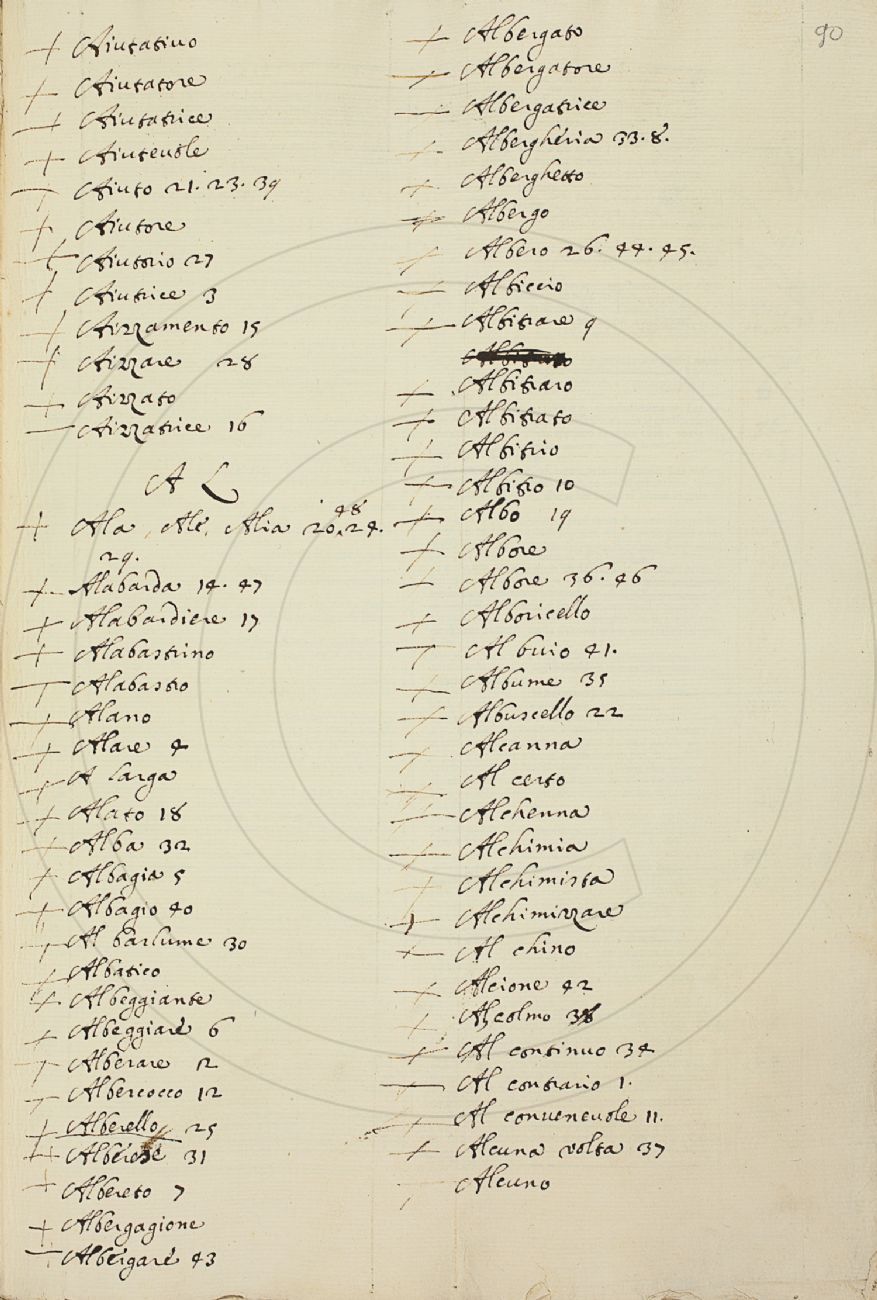 90
+ Aiutatiuo
+ Aiutatore
+ Aiutatrice
+ Aiuteuole
+ Aiuto 21. 23. 39
+ Aiutore
+ Aiutorio 27
+ Aiutrice 3
+ Aizzamento 15
+ Aizzare 28
+ Aizzato
Aizzatrice 16
A L
+ Ala, Ale, Alia 20. 48 24.
29.
+ Alabarda 14. 47
+ Alabardiere 17
+ Alabastrino
Alabastro
+ Alano
+ Alare 4
+ A larga
+ Alato 18
+ Alba 32
+ Albagia 5
+ Albagio 40
+ Al barlume 30
+ Albatico
+ Albeggiante
+ Albeggiare 6
+ Alberare 2
Albercocco 12
+ Alberello 25
+ Alberese 31
+ Albereto 7
Albergagione
+
Albergare 43
+ Albergato
+ Albergatore
Albergatrice
+ Albergheria 33. 8.
+ Alberghetto
+ Albergo
+ Albero 26. 44. 45.
Albiccio
+ Albitrare 9
+ Albitraro
+ Albitrato
+ Albitrio
+ Albitro 10
+ Albo 19
+ Albore
+ Albore 36. 46
+ Alboricello
Al buio 41.
+ Albume 35
+ Albuscello 22
+ Alcanna
+ Al certo
+ Alchenna
+ Alchimia
+ Alchimista
+ Alchimizzare
+ Al chino
+ Alcione 42
+ Al colmo 38
+ Al continuo 34
+ Al contrario 1.
+ Al conueneuole 11.
+ Alcuna volta 37
Alcuno